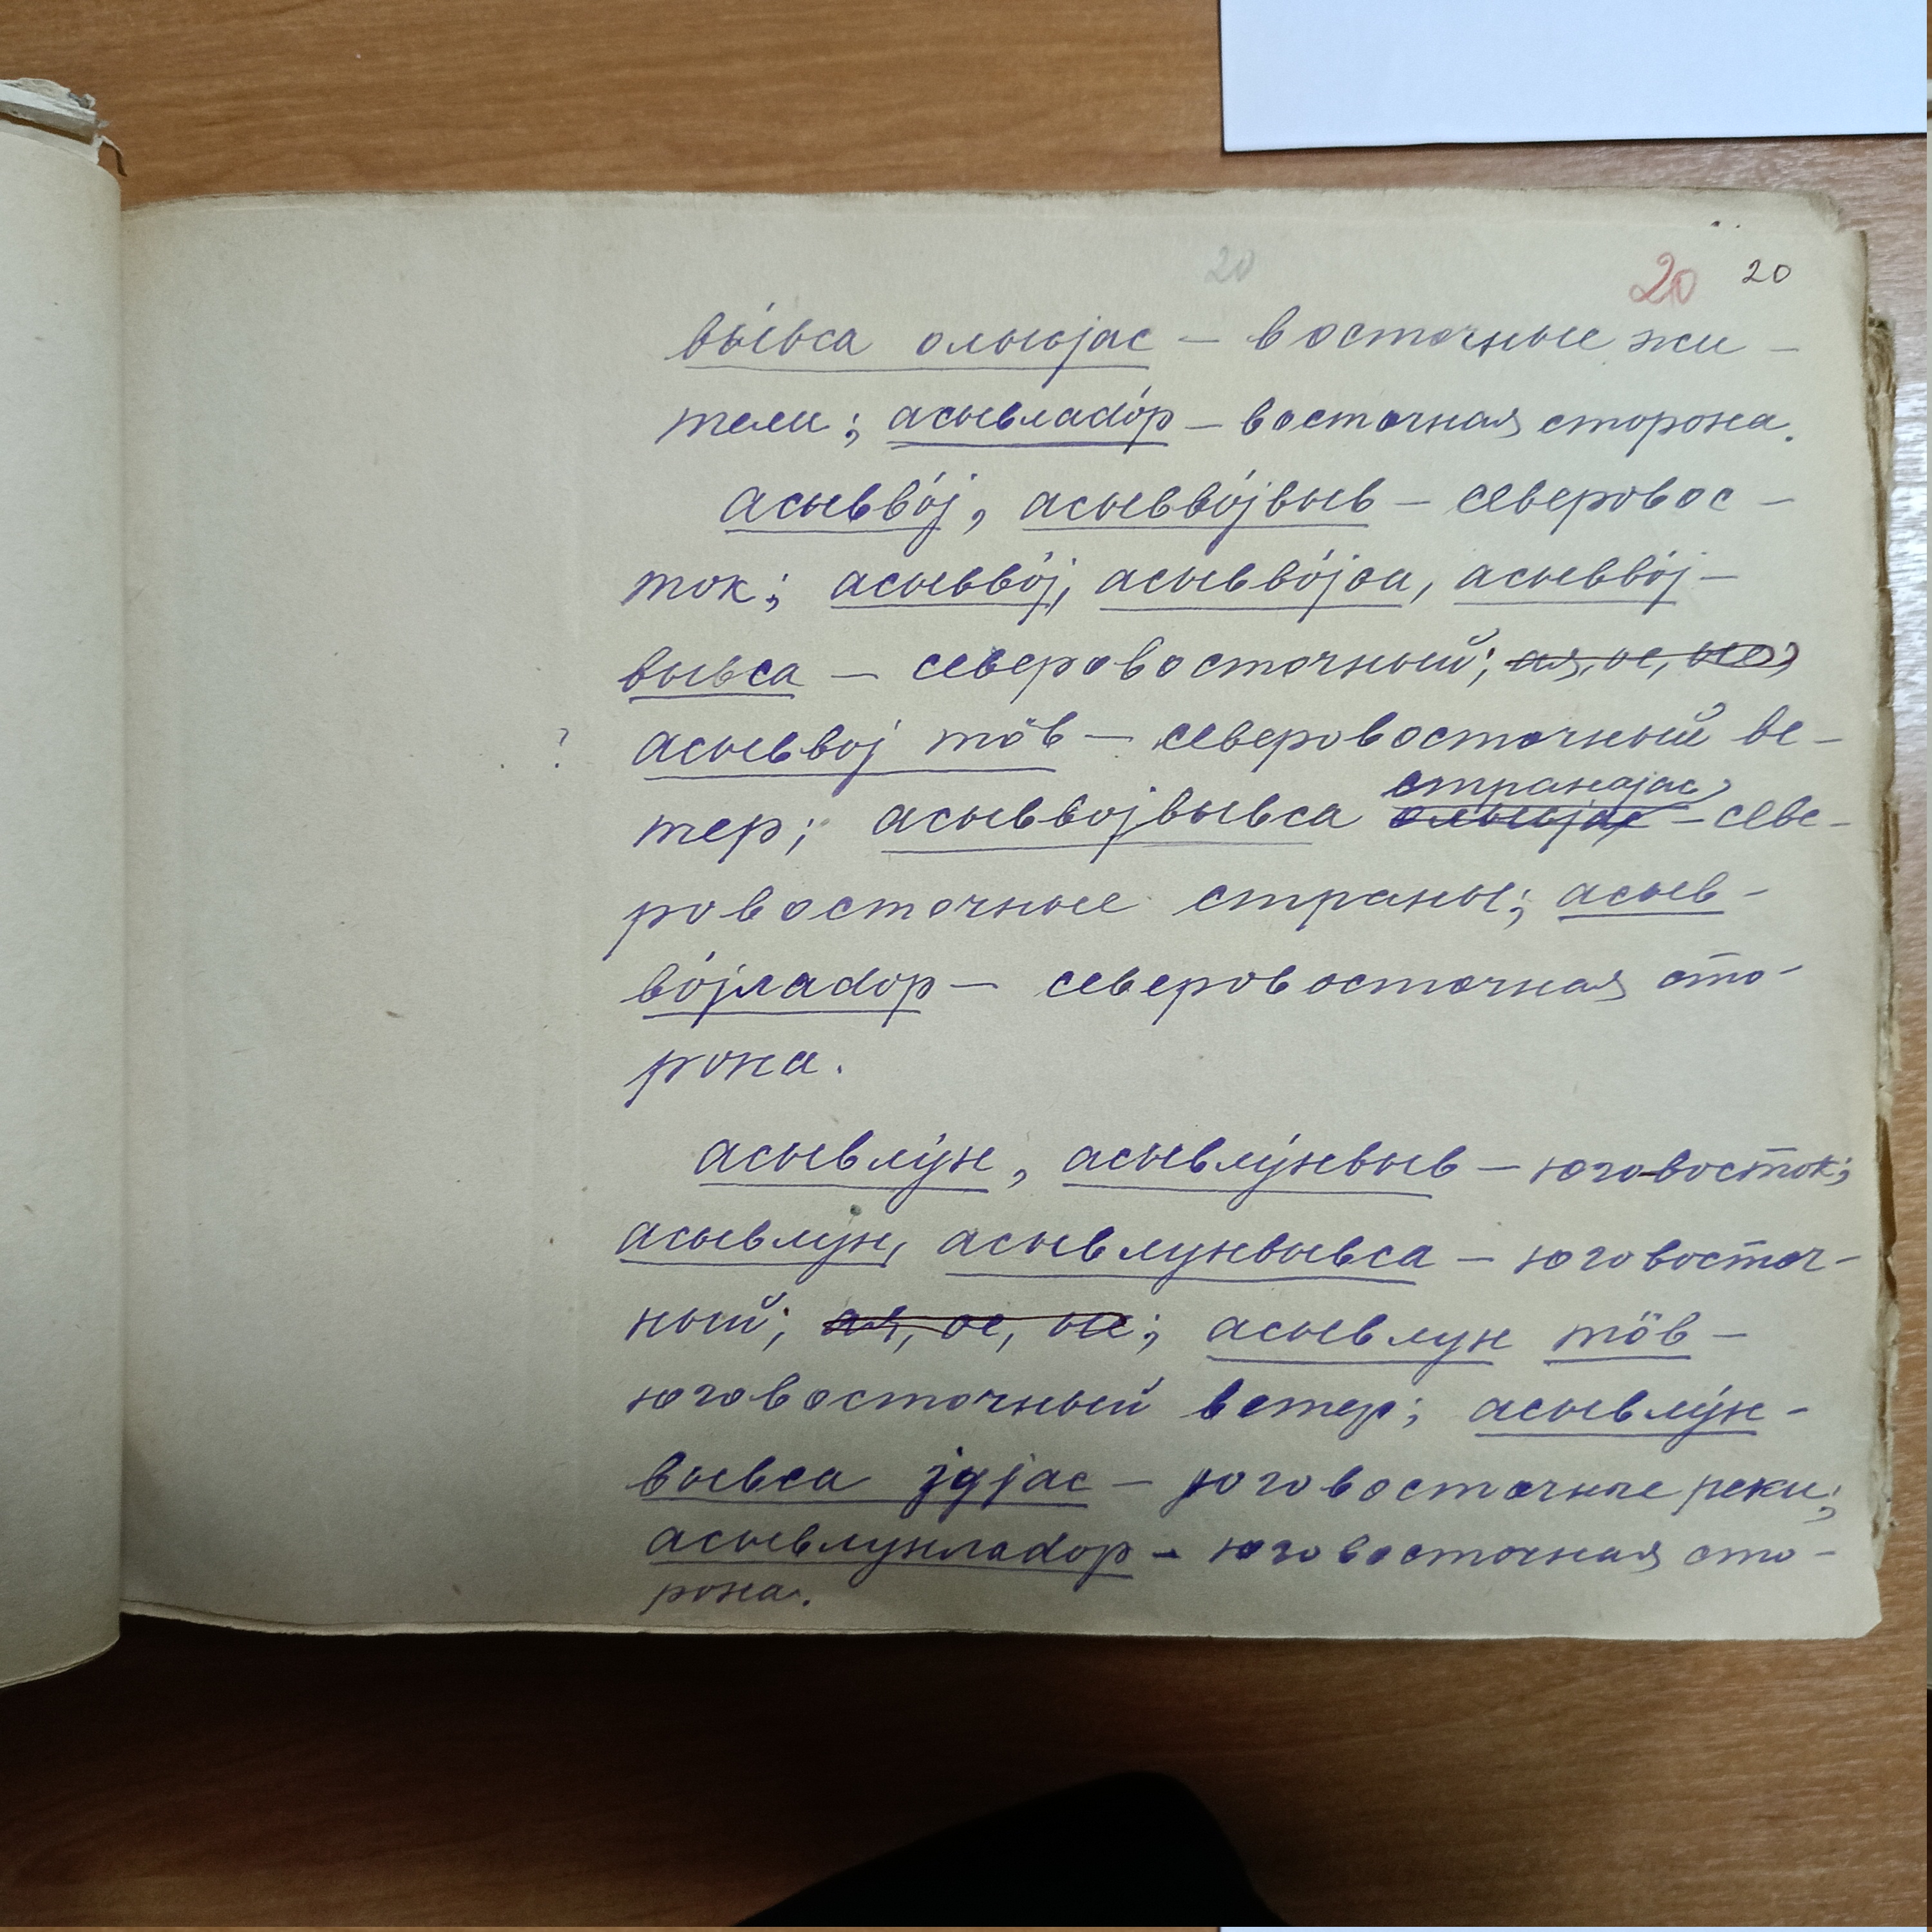 20 20 20
вы́вса олысјас — восточные жи-
тели; асывладо́р — восточная сторона.
асывво́ј, асывво́јвыв — северовос-
ток; асывво́ј, асывво́јса, асывво́ј-
вывса — северовосточный; ая, ое, ые;
? асыввој тöв — северовосточный ве-
странајас
тер; асыввојвывса олысјас — севе-
ровосточные страны; асыв-
во́јладор — северовосточная сто-
рона.
асывлу́н, асывлу́нвыв — юго-восток;
асывлун, асывлунвывса — юговосточ-
ный; ая, ое, ые; асывлун тöв —
юговосточный ветер; асывлу́н-
вывса јујас — юговосточные реки;
асывлунладор — юговосточная сто-
рона.